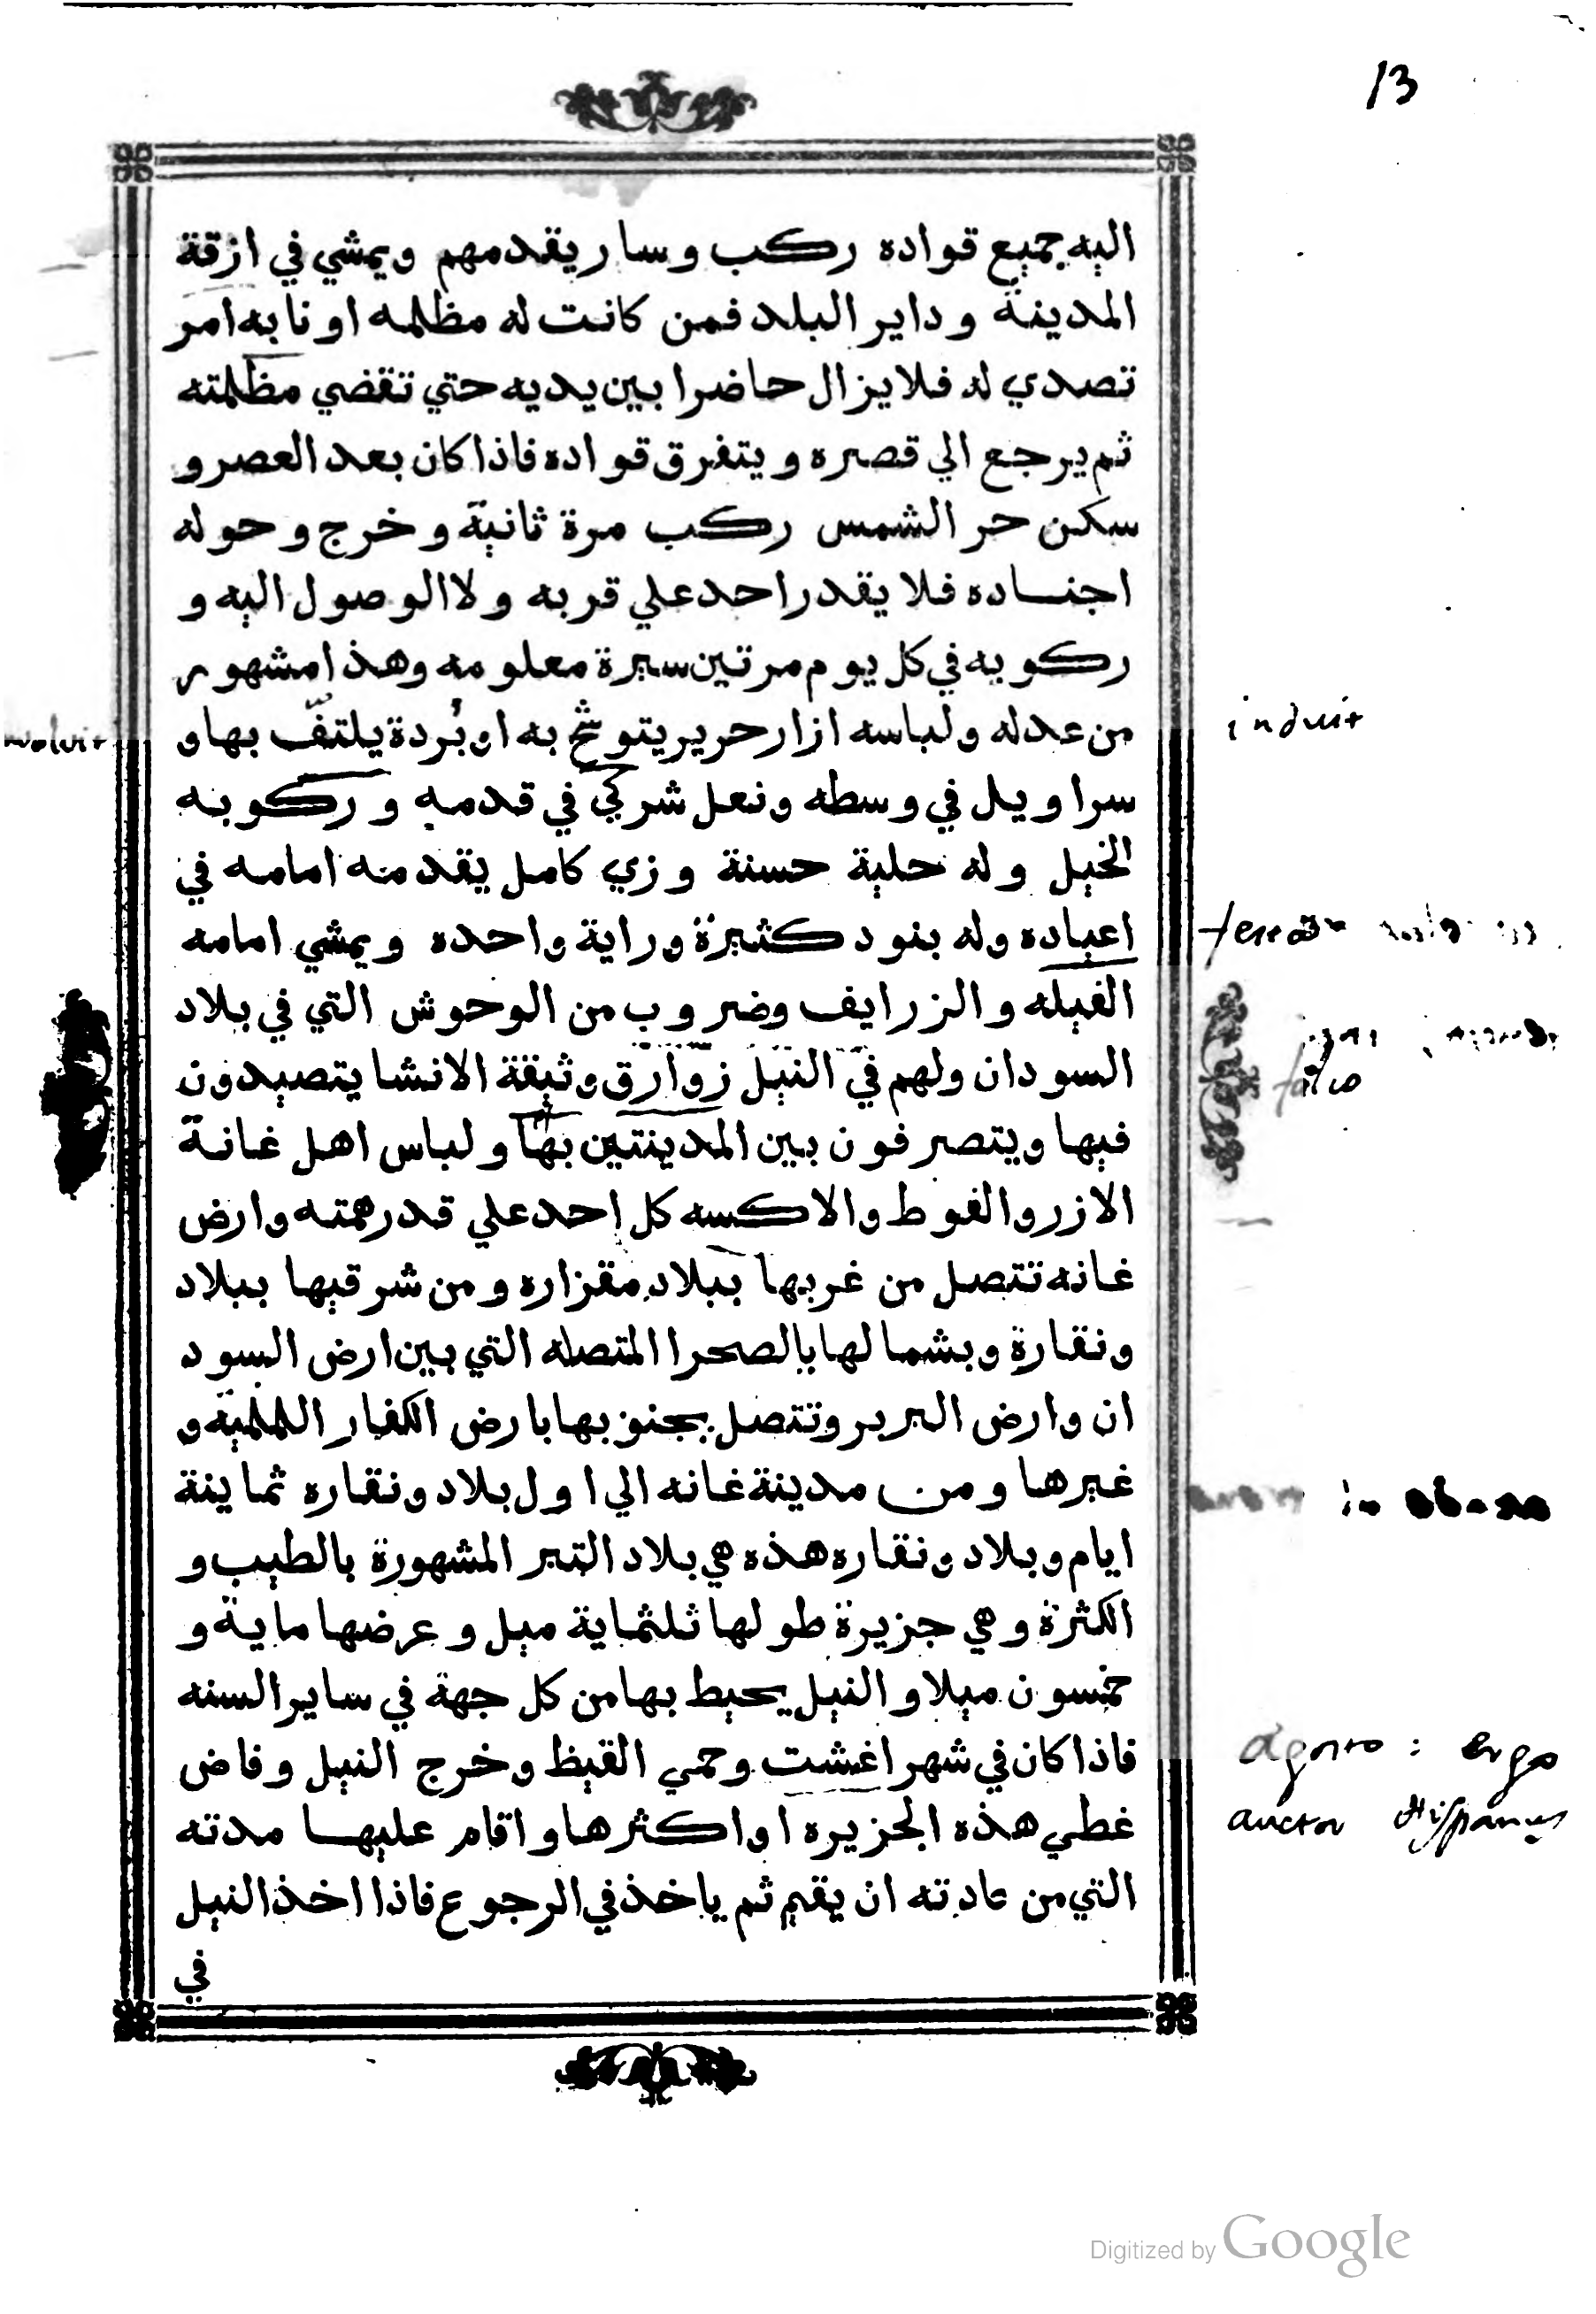 13
اليه جميع قواده ركب وسار يقدمهم ويمشي في ازقة
المدينة وداير البلد فمن كانت له مظلمه او نابه امر
تصدي له فلا يزال حاضرا بين يديه حتي تقضي مظلمته
ثم يرجع الي قصره ويتفرق قواده فاذا كان بعد العصر و
سكن حر الشمس ركب مرة ثانية وخرج وحوله
اجناده فلا يقدر احد علي قربه ولا الوصول اليه و
ركوبه في كل يوم مرتين سيرة معلومه وهذا مشهور
من عدله ولباسه ازار حرير يتوشح به او بُردة يلتفّ بها و
induit
سراويل في وسطه ونعل شركي في قدمه وركوبه
الخيل وله حلية حسنة وزي كامل يقدمنه امامه في
اعياده وله بنود كثيرة وراية واحده ويمشي امامه
الفيله والزرايف وضروب من الوحوش التي في بلاد
السودان ولهم في النيل زوارق وثيقة الانشا يتصيدون
فيها ويتصرفون بين المدينتين بها ولباس اهل غانة
الازر والفوط والاكسه كل احد علي قدر همته وارض
غانه تتصل من غربها ببلاد مقزاره ومن شرقيها ببلاد
ونقارة وبشمالها بالصحرا المتصله التي بين ارض السود
ان وارض البربر وتتصل بجنوبها بارض الكفار اللملمية و
غيرها ومن مدينة غانه الي اول بلاد ونقاره ثماينة
ايام وبلاد ونقاره هذه هي بلاد التبر المشهورة بالطيب و
الكثرة وهي جزيرة طولها ثلثماية ميل وعرضها ماية و
خمسون ميلا والنيل يحيط بها من كل جهة في ساير السنه
فاذا كان في شهر اغشت وحمي القيظ وخرج النيل وفاض
agosto : ergo
غطي هذه الجزيره او اكثرها واقام عليها مدته
auctor Hispanus
التي من عادته ان يقيم ثم ياخذ في الرجوع فاذا اخذ النيل
في
Digitized by Google